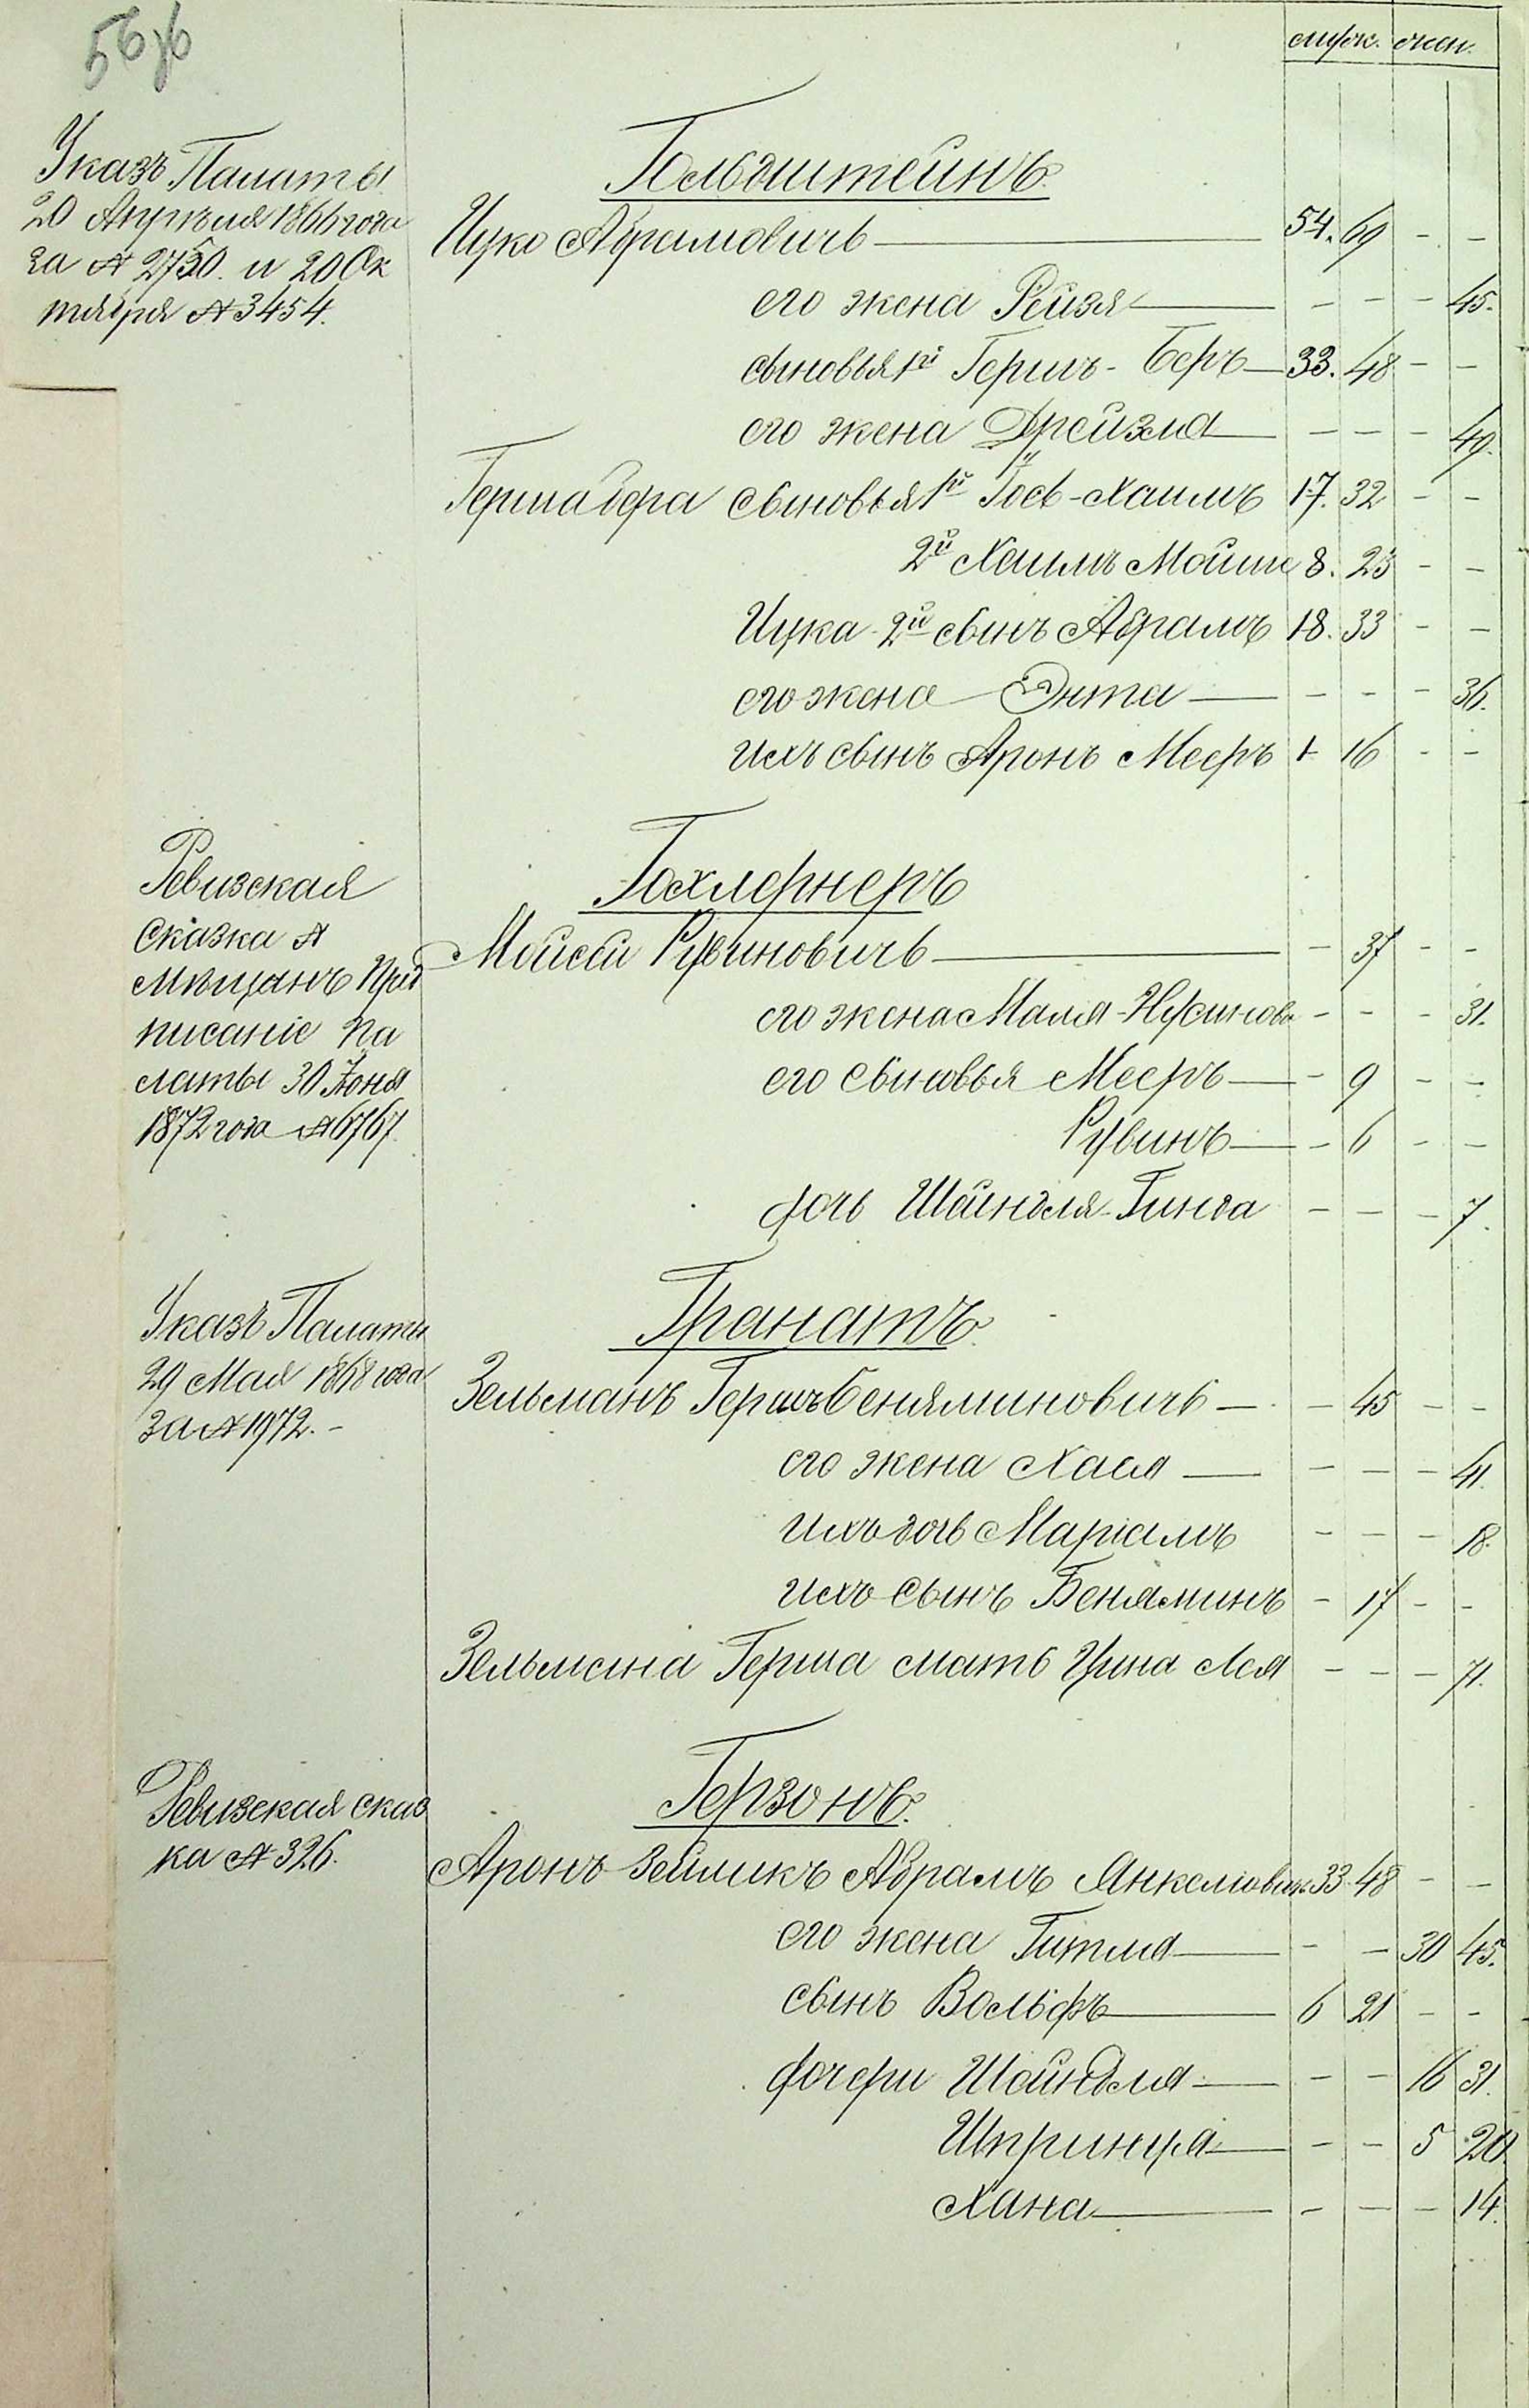 56
муж. жен.
Указъ Палаты
20 Апрѣля 1866 года
за № 2750. и 20 Ок
тября № 3454.
Гольдштейнъ.
Ицко Абрамовичъ — 54. 69 - -
его жена Рейзя — - - - 45.
сыновья 1й Гершъ-Беръ — 33. 48 - -
его жена Дрейзля — - - - 49.
Герша Бера сыновья 1й Іось-Хаимъ 17. 32 - -
2й Хаимъ Мойше 8. 23 - -
Ицка 2й сынъ Абрамъ 18. 33 - -
его жена Энта — - - - 36.
ихъ сынъ Аронъ Мееръ 1 16 - -
Ревизская
Сказка №
мѣщанъ При
писаніе Па
латы 30 Іюня
1872 года № 6767.
Гохлернеръ
Мойсей Рувиновичъ — - 37 - -
его жена Маля-Нусинова - - - 31.
его сыновья Мееръ — - 9 - -
Рувинъ — - 6 - -
дочь Шейндля-Гинда - - - 7.
Указъ Палаты
29 Мая 1868 года
за № 1972. -
Гранатъ.
Зельманъ Гершъ Беняминовичъ — - 45 - -
его жена Хася — - - - 41.
ихъ дочь Маріамъ - - - 18.
ихъ сынъ Беняминъ - 17 - -
Зельмана Герша мать Цина Лея - - - 71.
Ревизская сказ
ка № 326.
Герзонъ.
Аронъ Зейликъ Абрамъ Янкелювичъ 33 48 - -
его жена Гитля — - - 30 45.
сынъ Вольфъ — 6 21 - -
дочери Шейндля — - - 16 31.
Шпринца — - - 5 20.
Хана — - - - 14.